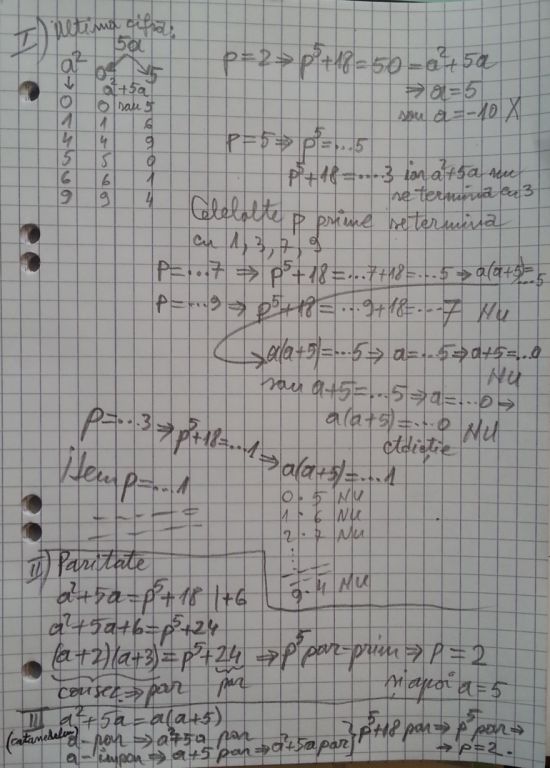 I) Ultima cifră:
5a
a² 0 5
↓ a²+5a
0 0 sau 5
1 1 6
4 4 9
5 5 0
6 6 1
9 9 4
p=2 ⇒ p⁵+18=50=a²+5a
⇒ a=5
sau a=-10 X
p=5 ⇒ p⁵=...5
p⁵+18=...3 iar a²+5a nu
se termină cu 3
Celelalte p prime se termină
cu 1, 3, 7, 9
p=...7 ⇒ p⁵+18=...7+18=...5 ⇒ a(a+5)=...5
p=...9 ⇒ p⁵+18=...9+18=...7 NU
a(a+5)=...5 ⇒ a=...5 ⇒ a+5=...0
NU
sau a+5=...5 ⇒ a=...0 →
a(a+5)=...0 NU
ctdicție
p=...3 ⇒ p⁵+18=...1 ⇒ a(a+5)=...1
Item p=...1
0·5 NU
1·6 NU
2·7 NU
⋮
9·4 NU
II) Paritate
a²+5a=p⁵+18 |+6
a²+5a+6=p⁵+24
(a+2)(a+3)=p⁵+24 ⇒ p⁵ par-prim ⇒ p=2
consec ⇒ par par și apoi a=5
III a²+5a=a(a+5)
a-par ⇒ a²+5a par
a-impar ⇒ a+5 par ⇒ a²+5a par } p⁵+18 par ⇒ p⁵ par ⇒
⇒ p=2.